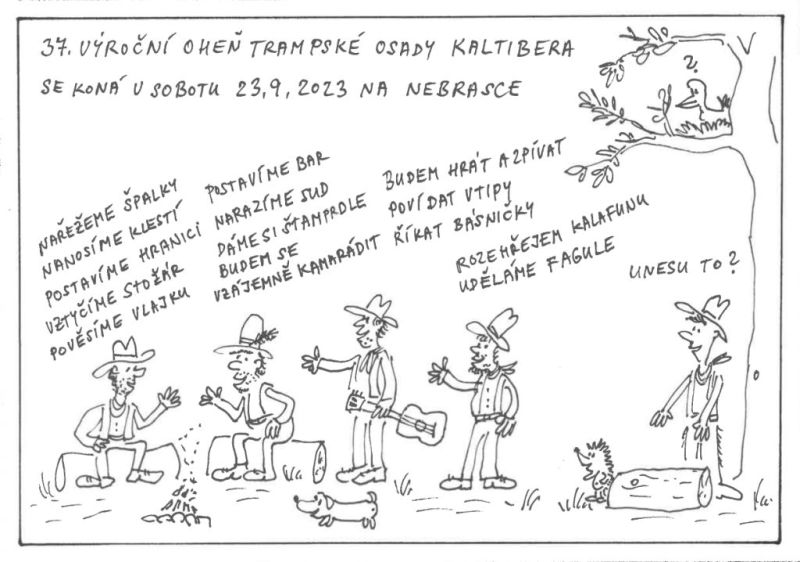 37. VÝROČNÍ OHEŇ TRAMPSKÉ OSADY KALTIBERA
SE KONÁ V SOBOTU 23,9,2023 NA NEBRASCE
?
NAŘEŽEME ŠPALKY
NANOSÍME KLESTÍ
POSTAVÍME HRANICI
VZTYČÍME STOŽÁR
POVĚSÍME VLAJKU
POSTAVÍME BAR
NARAZÍME SUD
DÁME SI ŠTAMPRLE
BUDEM SE
VZÁJEMNĚ KAMARÁDIT
BUDEM HRÁT A ZPÍVAT
POVÍDAT VTIPY
ŘÍKAT BÁSNIČKY
ROZEHŘEJEM KALAFUNU
UDĚLÁME FAGULE
UNESU TO?